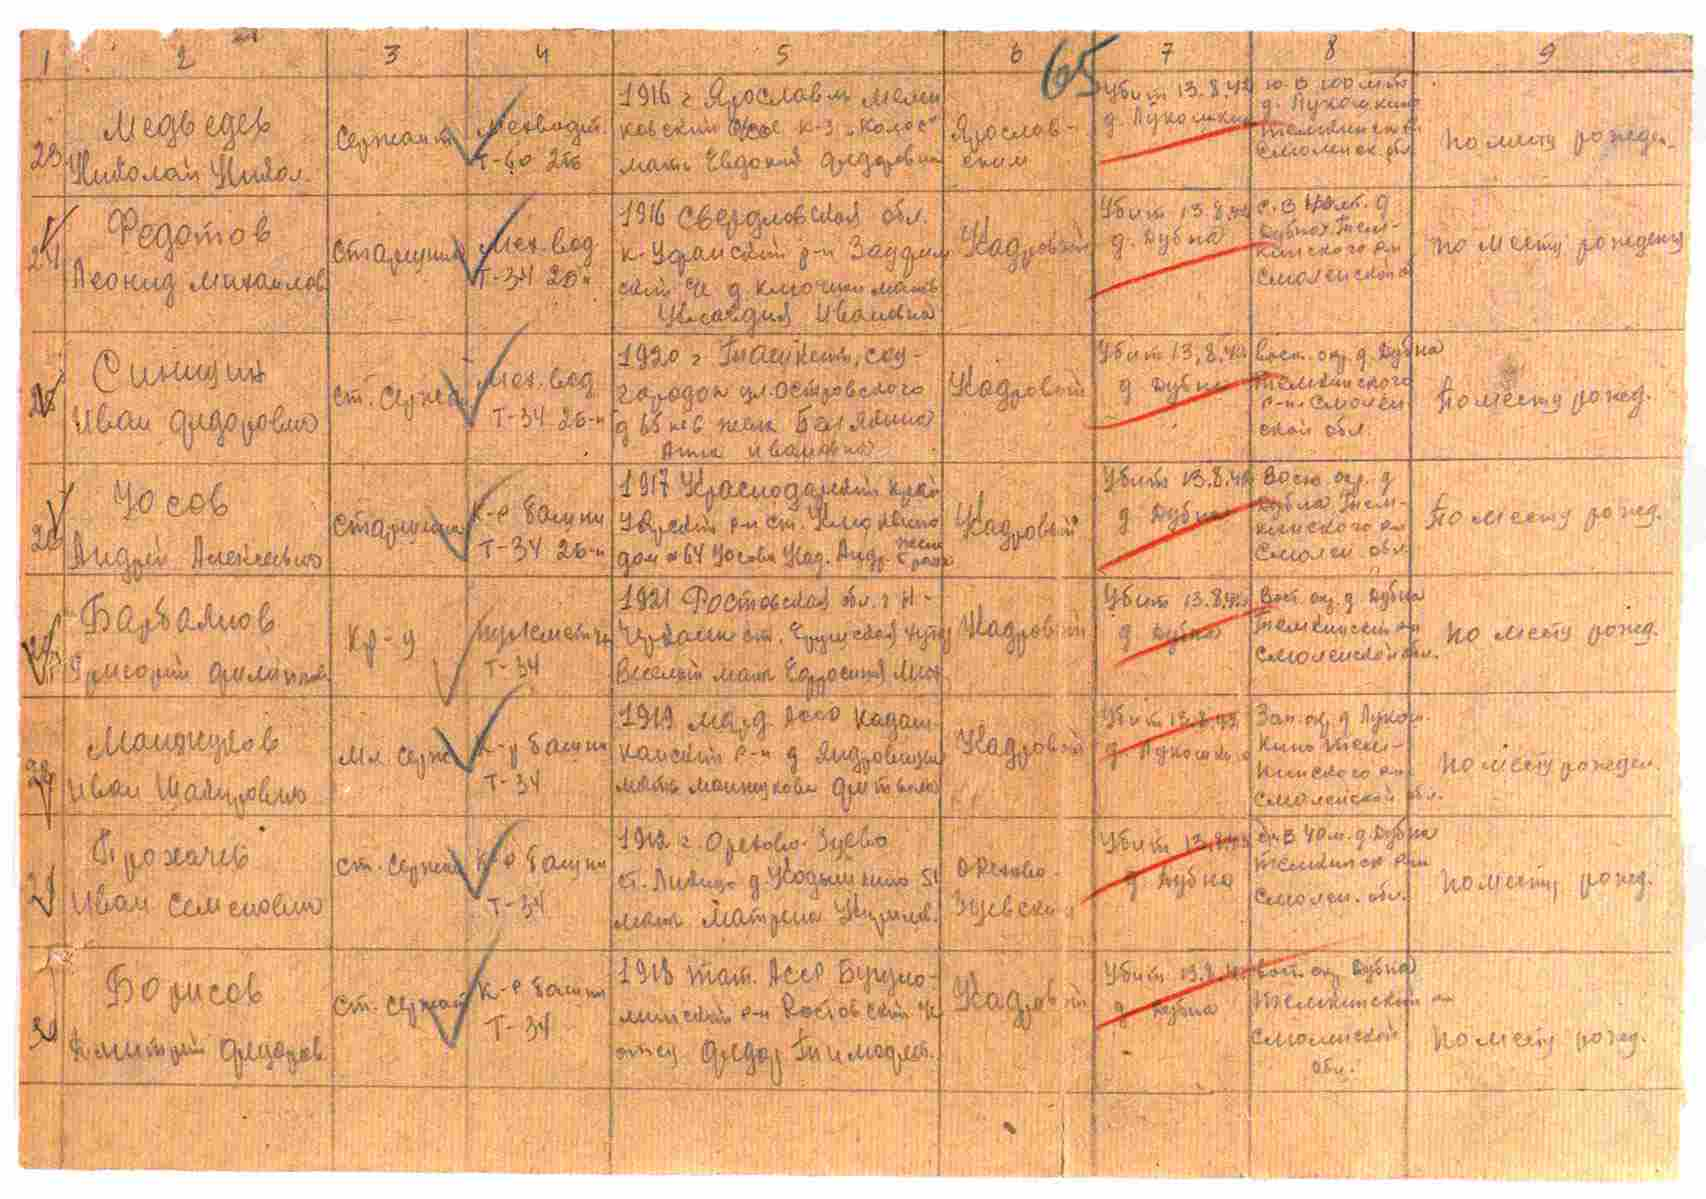 1 2 3 4 5 6 7 8 9
65
23
Медведев
Николай Никол.
Сержант
Мехводит.
Т-60 2тб
1916 г Ярославль
к-з "Колос"
мать Евдокия Федоровна
Ярослав-
ским
Убит 13.8.42
д. Лукошкино
ю-В 100 мтр
д. Лукошкино
Темкинск
Смоленск обл
по месту рожден.
24
Федотов
Леонид Михайлов
Старшина
Мех. вод
Т-34 2б-н
1916 Свердловская обл.
р-н
д. Ключики мать
Ивановна
Кадровый
Убит 13.8.42
д. Дубна
с. В д
Дубна Тем-
кинского р-н
Смоленской о
по месту рождения
Синицин
Иван Федорович
Ст. Сержан
Мех. вод
Т-34 2б-н
1920 г Ташкент, соц-
городок ул. Островского
д 65 кв 6 жена
Анна Ивановна
Кадровый
Убит 13,8,42
д Дубна
Вост. окр. д. Дубна
Темкинского
р-н Смолен
ской обл.
По месту рожд.
26
Усов
Андрей Алексеевич
Старшина
К-р башни
Т-34 2б-н
1917 Краснодарский край
р-н ст.
дом № 64 Усова Андр. жена
Кадровый
Убит 13.8.42
д Дубна
Вост окр. д
Дубна Тем-
кинского р-н
Смолен. обл
По месту рожд.
Барбаянов
Григорий Филиппов
Кр-ц
Т-34
1921 Ростовская обл. г Н-
Черкасск ст. хутор
Веселый мать Ефросиния
Кадровый
Убит 13.8.42
д Дубна
Вост. окр. д. Дубна
Темкинский р-н
Смоленской обл.
по месту рожд.
Манжуков
Иван
Мл. Серж
К-р башни
Т-34
1919 АССР
р-н д
мать Манжукова
Кадровый
Убит 13.8.42
д Лукошкино
Зап. окр. д Лукош-
кино Тем-
кинского р-н
Смоленской обл.
по месту рожден.
29
Прохачев
Иван Семенович
Ст. Сержан
К-р башни
Т-34
1912 г. Орехово-Зуево
ст. д. 51
мать Матрена
Орехово-
Зуевским
Убит 13.8.42
д. Дубна
В 40 м. д. Дубна
Темкинск р-н
Смолен. обл.
по месту рожд.
Борисов
Дмитрий Федоров
Ст. Сержант
К-р башни
Т-34
1918 Тат. АССР Бугуль-
минский р-н
отец Федор
Кадровый
Убит 13.8.42
д Дубна
Вост. окр Дубна
Темкинский р-н
Смоленской
обл.
по месту рожд.